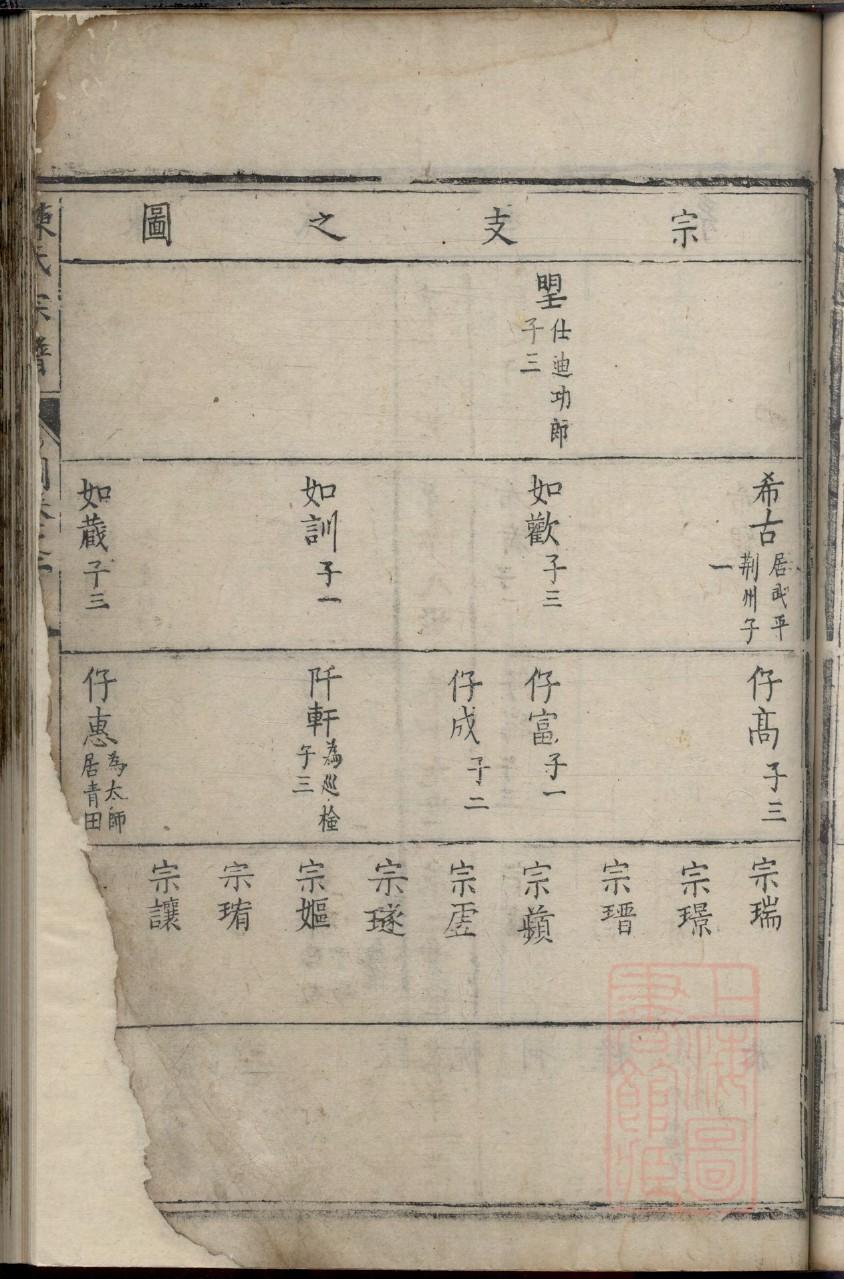 宗支之圖
塱 仕迪功郎 子三
希古 居武平荆州子一
如歡 子三
如訓 子一
如蕆 子三
仔高 子三
仔富 子一
仔成 子二
阡軒 為巡檢 子三
仔惠 為太師 居青田
宗瑞
宗璟
宗瑨
宗蘋
宗虗
宗璲
宗嫗
宗珛
宗讓
陳氏宗譜
上海圖書館藏